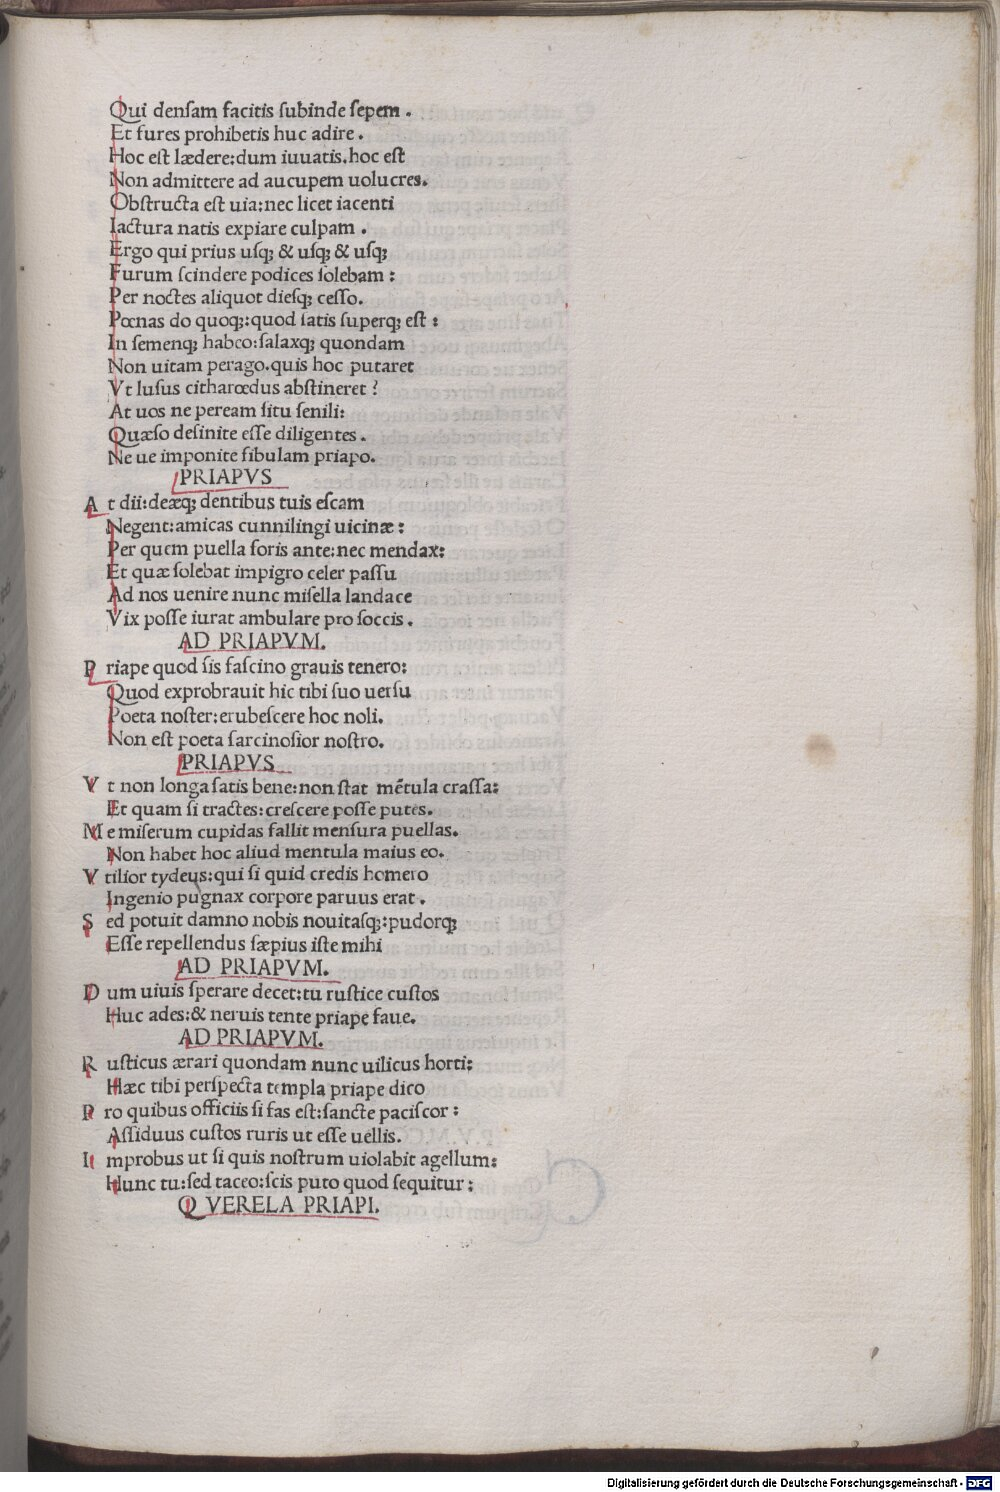 Qui densam facitis subinde sepem .
Et fures prohibetis huc adire .
Hoc est lædere: dum iuuatis. hoc est
Non admittere ad aucupem uolucres.
Obstructa est uia: nec licet iacenti
Iactura natis expiare culpam .
Ergo qui prius usq; & usq; & usq;
Furum scindere podices solebam :
Per noctes aliquot diesq; cesso.
Pœnas do quoq;: quod satis superq; est :
In semenq; habeo: salaxq; quondam
Non uitam perago. quis hoc putaret
Vt lusus citharœdus abstineret ?
At uos ne peream situ senili:
Quæso desinite esse diligentes .
Ne ue imponite fibulam priapo.
PRIAPVS
At dii: deæq; dentibus tuis escam
Negent: amicas cunnilingi uicinæ :
Per quem puella foris ante: nec mendax:
Et quæ solebat impigro celer passu
Ad nos uenire nunc misella landace
Vix posse iurat ambulare pro soccis .
AD PRIAPVM.
Priape quod sis fascino grauis tenero:
Quod exprobrauit hic tibi suo uersu
Poeta noster: erubescere hoc noli.
Non est poeta sarcinosior nostro.
PRIAPVS
Vt non longa satis bene: non stat mētula crassa:
Et quam si tractes: crescere posse putes.
Me miserum cupidas fallit mensura puellas.
Non habet hoc aliud mentula maius eo.
Vtilior tydeus: qui si quid credis homero
Ingenio pugnax corpore paruus erat .
Sed potuit damno nobis nouitasq;: pudorq;
Esse repellendus sæpius iste mihi
AD PRIAPVM.
Dum uiuis sperare decet: tu rustice custos
Huc ades: & neruis tente priape faue.
AD PRIAPVM.
Rusticus ærari quondam nunc uilicus horti:
Hæc tibi perspecta templa priape dico
Pro quibus officiis si fas est: sancte paciscor :
Assiduus custos ruris ut esse uellis.
Improbus ut si quis nostrum uiolabit agellum:
Hunc tu: sed taceo: scis puto quod sequitur :
QVERELA PRIAPI.
Digitalisierung gefördert durch die Deutsche Forschungsgemeinschaft - DFG